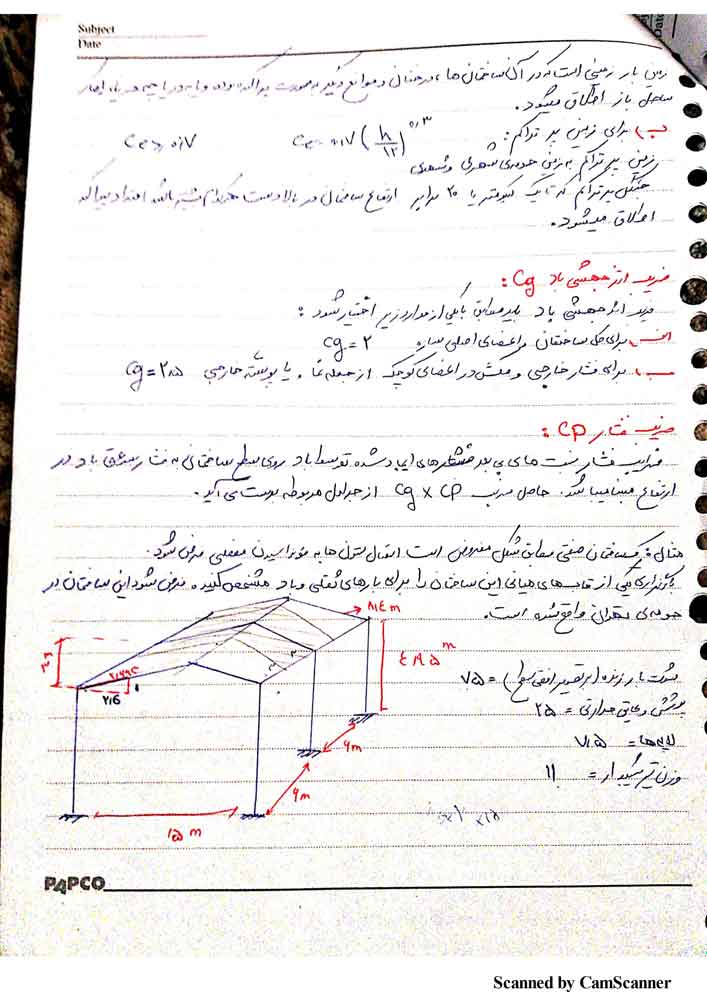 Subject
Date
زمین باز زمینی است که در آن ساختمان ها، درختان و موانع دیگر به صورت پراکنده بوده و یا به دریاچه، دریا یا
ساحل باز اطلاق میشود.
ب) برای زمین پر تراکم: Ce = ۰٫۷ (h/۱۲)^۰٫۳ Ce ≥ ۰٫۷
زمین پر تراکم به زمین حومه‌ی شهری و شهری
جنگل پر تراکم که تا یک کیلومتر یا ۲۰ برابر ارتفاع ساختمان در بالادست هرکدام بیشتر باشد امتداد پیدا کند
اطلاق میشود.
ضریب اثر جهشی باد Cg:
ضریب اثر جهشی باد باید مطابق با یکی از موارد زیر اختیار شود:
الف) برای کل ساختمان و اعضای اصلی سازه Cg = ۲
ب) برای فشار خارجی و مکش در اعضای کوچک از جمله نما، و یا پوشش خارجی Cg = ۲٫۵
ضریب فشار Cp:
ضرایب فشار نسبت های بی بعد فشارهای ایجاد شده توسط باد روی سطح ساختمان به فشار باد در
ارتفاع مبنا میباشد. حاصل ضرب Cg × Cp از جداول مربوطه بدست می آید.
مثال: یک ساختمان صنعتی مطابق شکل مفروض است اتصال ستون ها به فونداسیون مفصلی فرض شود.
بارگذاری یکی از قابهای میانی این ساختمان را برای بارهای ثقلی و باد مشخص کنید. فرض شود این ساختمان در
حومه‌ی تهران واقع شده است.
۸٫۱۴ m
۴٫۸۵ m
۳ m
۱
۲٫۵
شدت بار زنده (بر تصویر افقی سطح) = ۷۵
پوشش و عایق حرارتی = ۲۵
لاپه‌ها = ۷٫۵
وزن تیر شیبدار = ۱۱
۶m
۶m
۱۵ m
PAPCO
Scanned by CamScanner